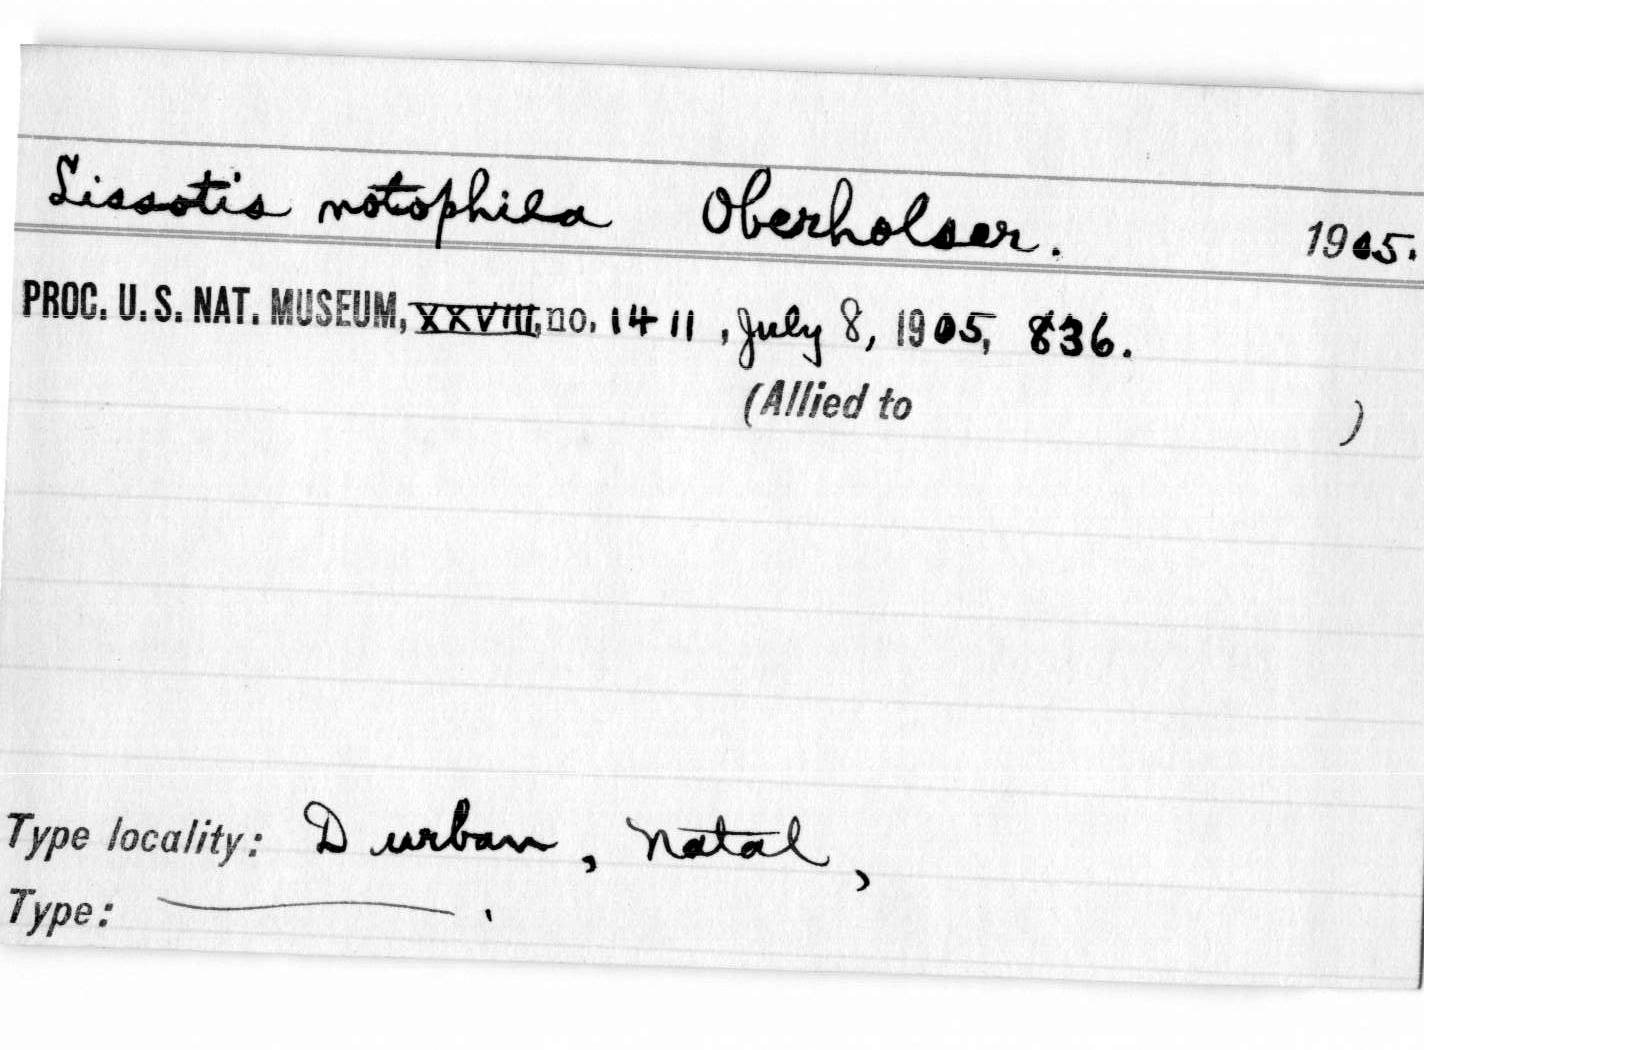 Lissotis notophila Oberholser. 1905.
PROC. U. S. NAT. MUSEUM, XXVIII, no. 1411, July 8, 1905, 836.
(Allied to )
Type locality: Durban, Natal,
Type: .